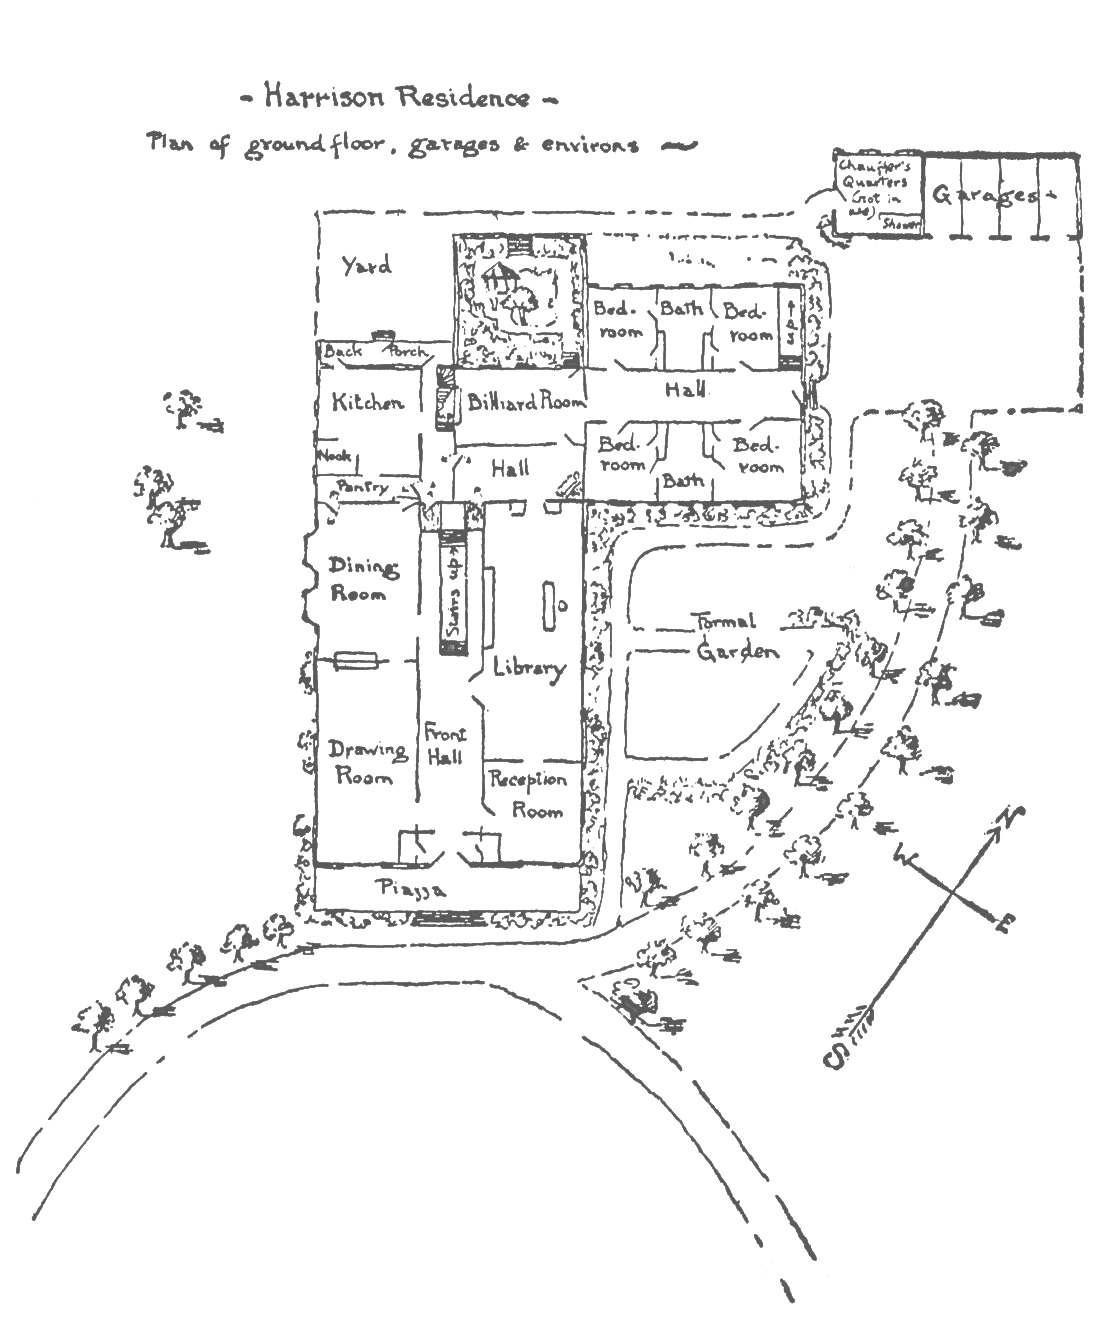 - Harrison Residence -
Plan of ground floor, garages & environs
Chauffer's
Quarters
(not in
use)
Shower
Garages
Yard
Bed-
room
Bath
Bed-
room
Ups
Back Porch
Kitchen
Billiard Room
Hall
Nook
Hall
Bed-
room
Bath
Bed-
room
Pantry
Dining
Room
Stairs up
Library
Formal
Garden
Drawing
Room
Front
Hall
Reception
Room
Piazza
N
W
E
S